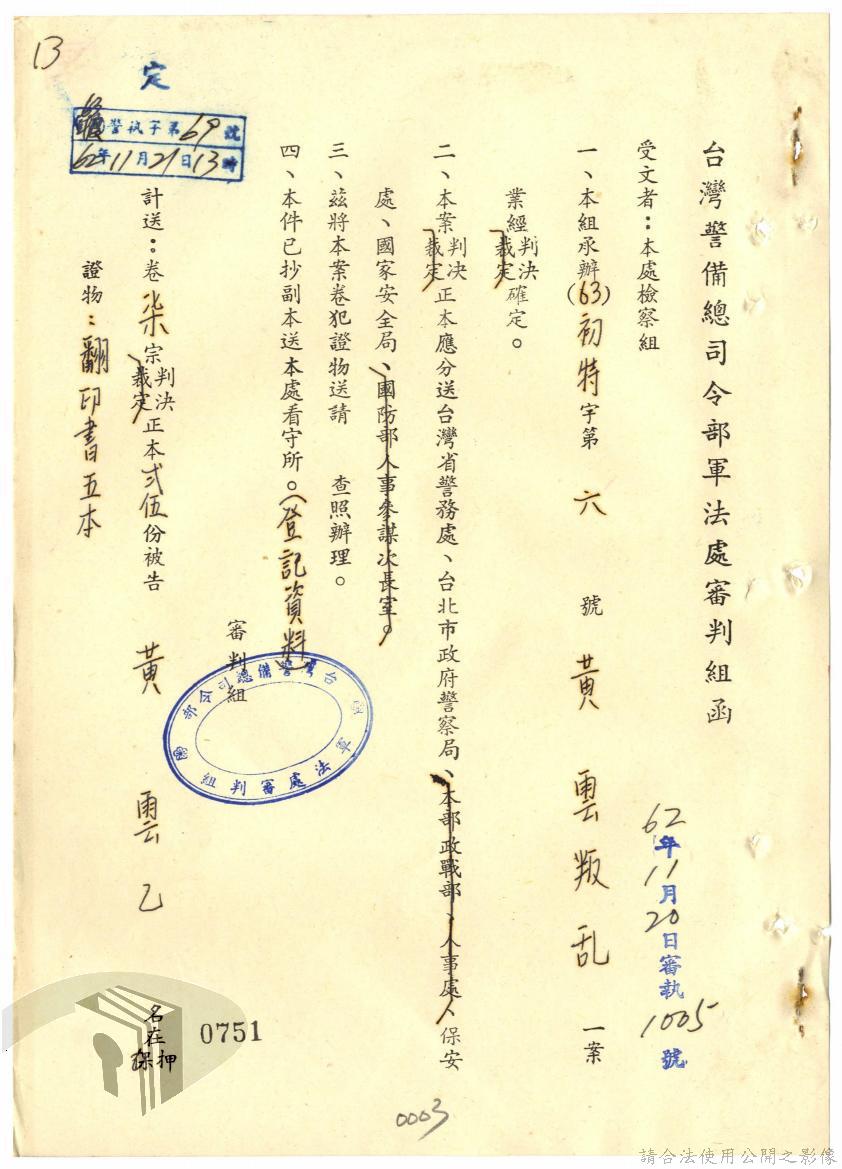 13
台灣警備總司令部軍法處審判組函
62年11月20日審執1005號
受文者：本處檢察組
一、本組承辦(63)初特字第六號黃雲叛乱一案
業經判決裁定確定。
二、本案判決裁定正本應分送台灣省警務處、台北市政府警察局、本部政戰部、人事處、保安
處、國家安全局、國防部人事參謀次長室。
三、茲將本案卷犯證物送請　查照辦理。
四、本件已抄副本送本處看守所。(登記資料)
審判組
台灣警備總司令部
軍法處審判組
計送：卷柒宗判決裁定正本弍伍份被告黃雲乙名在押保
證物：翻印書五本
定
警執字第69號
62年11月21日13時
0751
0003
請合法使用公開之影像